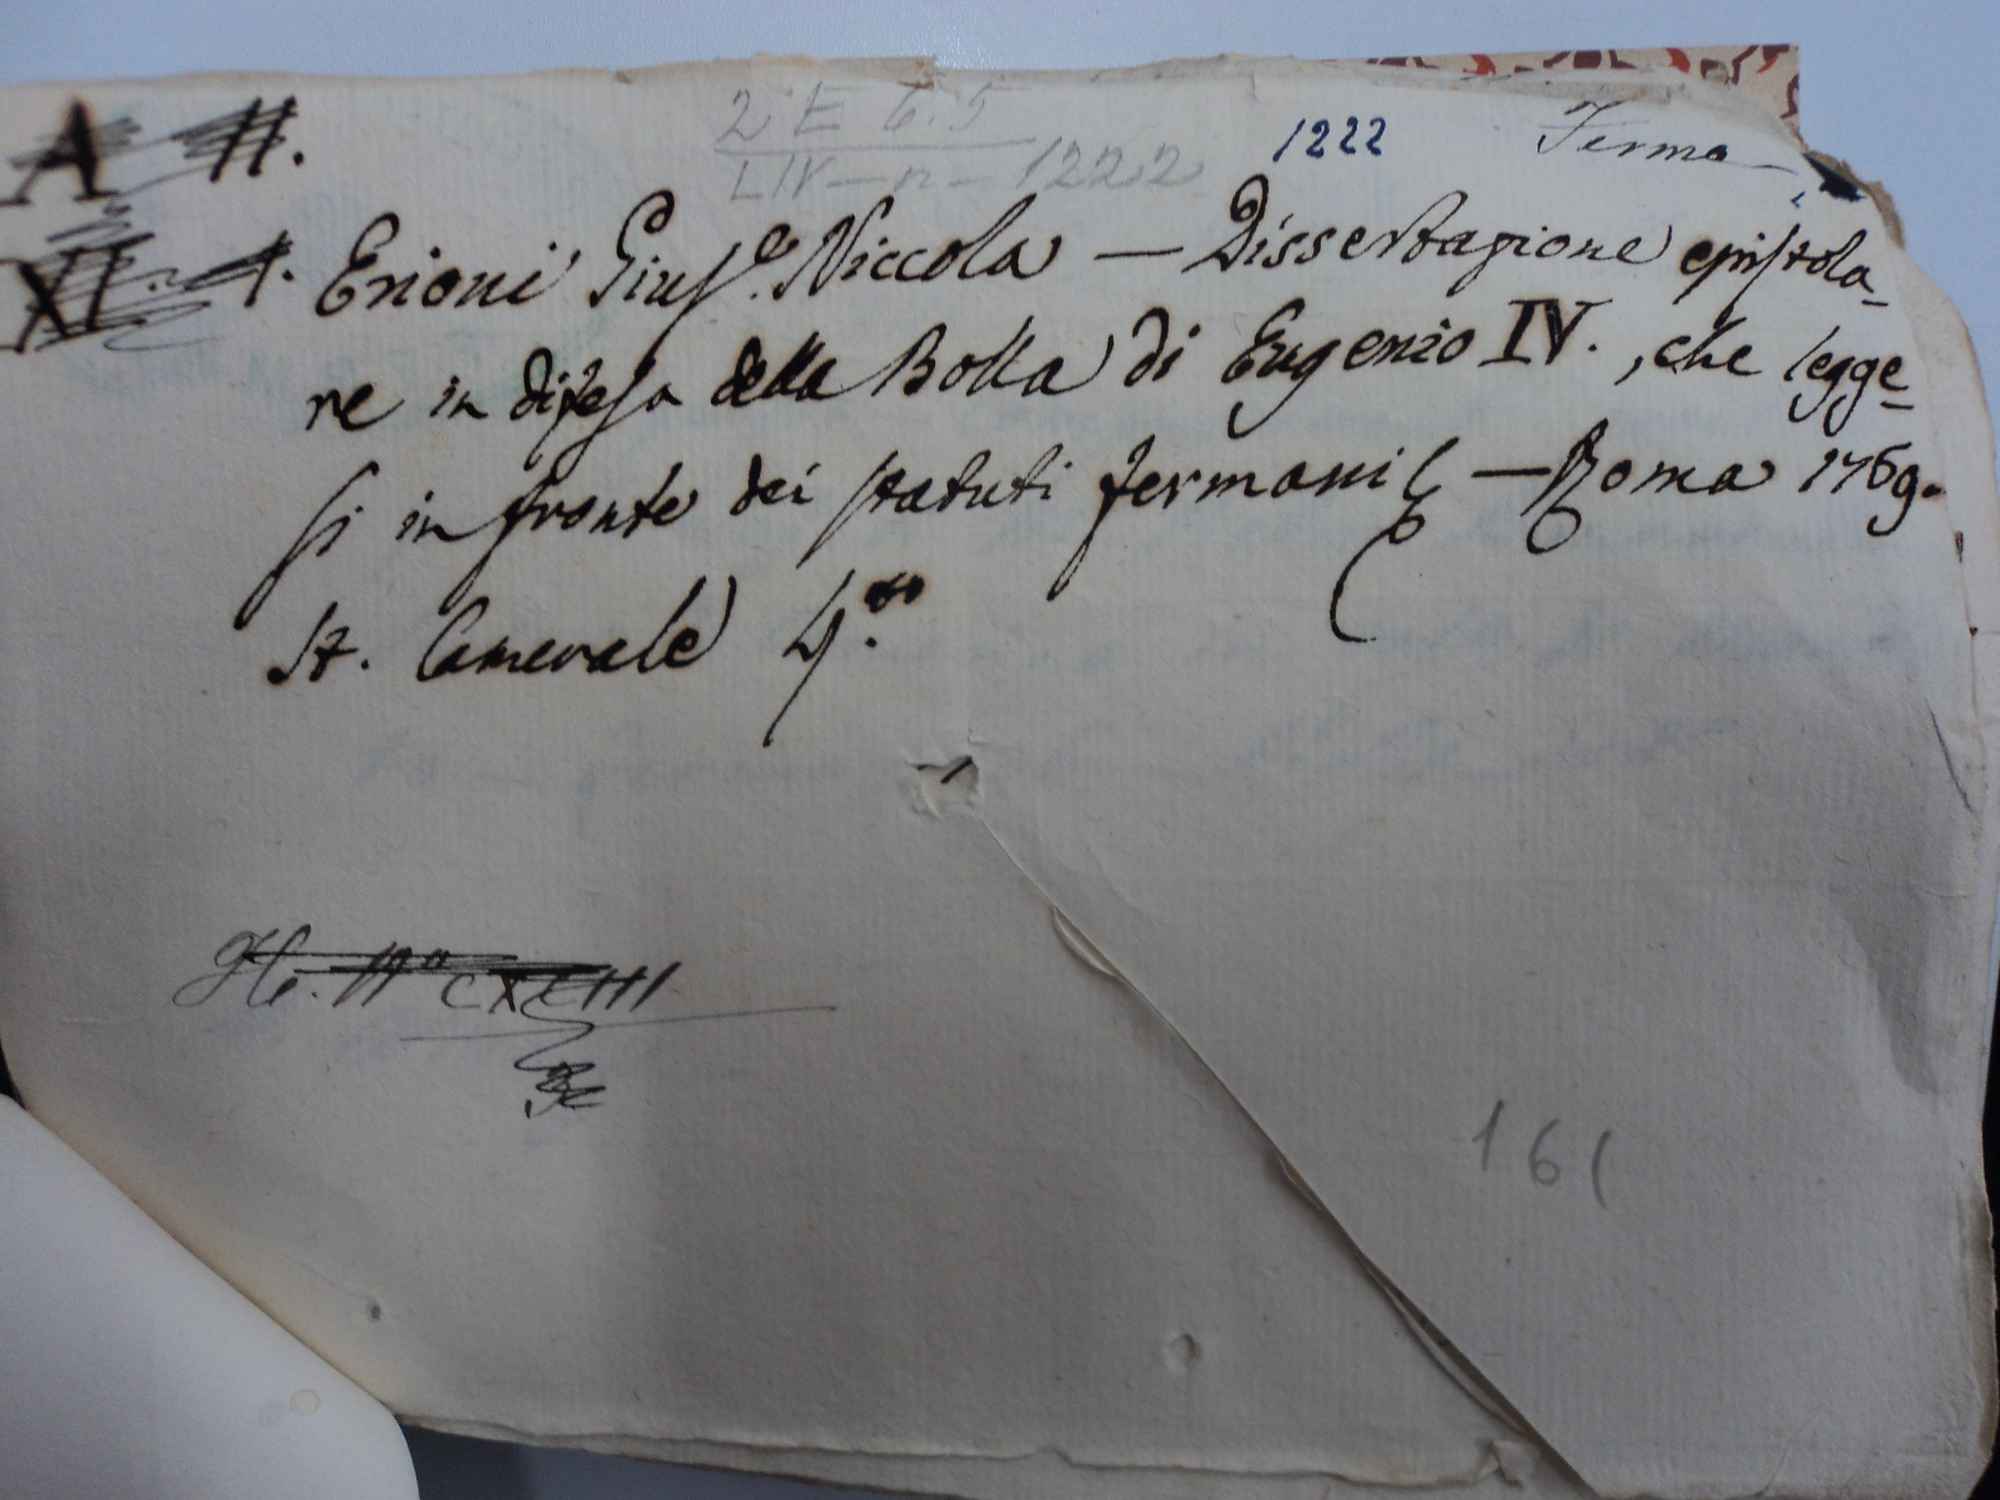 A 11.
2 E 6.5
LIV - n - 1222
1222
Fermo
XI. 1. Erioni Giuse. Niccola — Dissertazione epistola-
re in difesa della Bolla di Eugenio IV., che legge-
si in fronte dei statuti fermani — Roma 1769.
St. Camerale 4.to
N° CXCIII
161